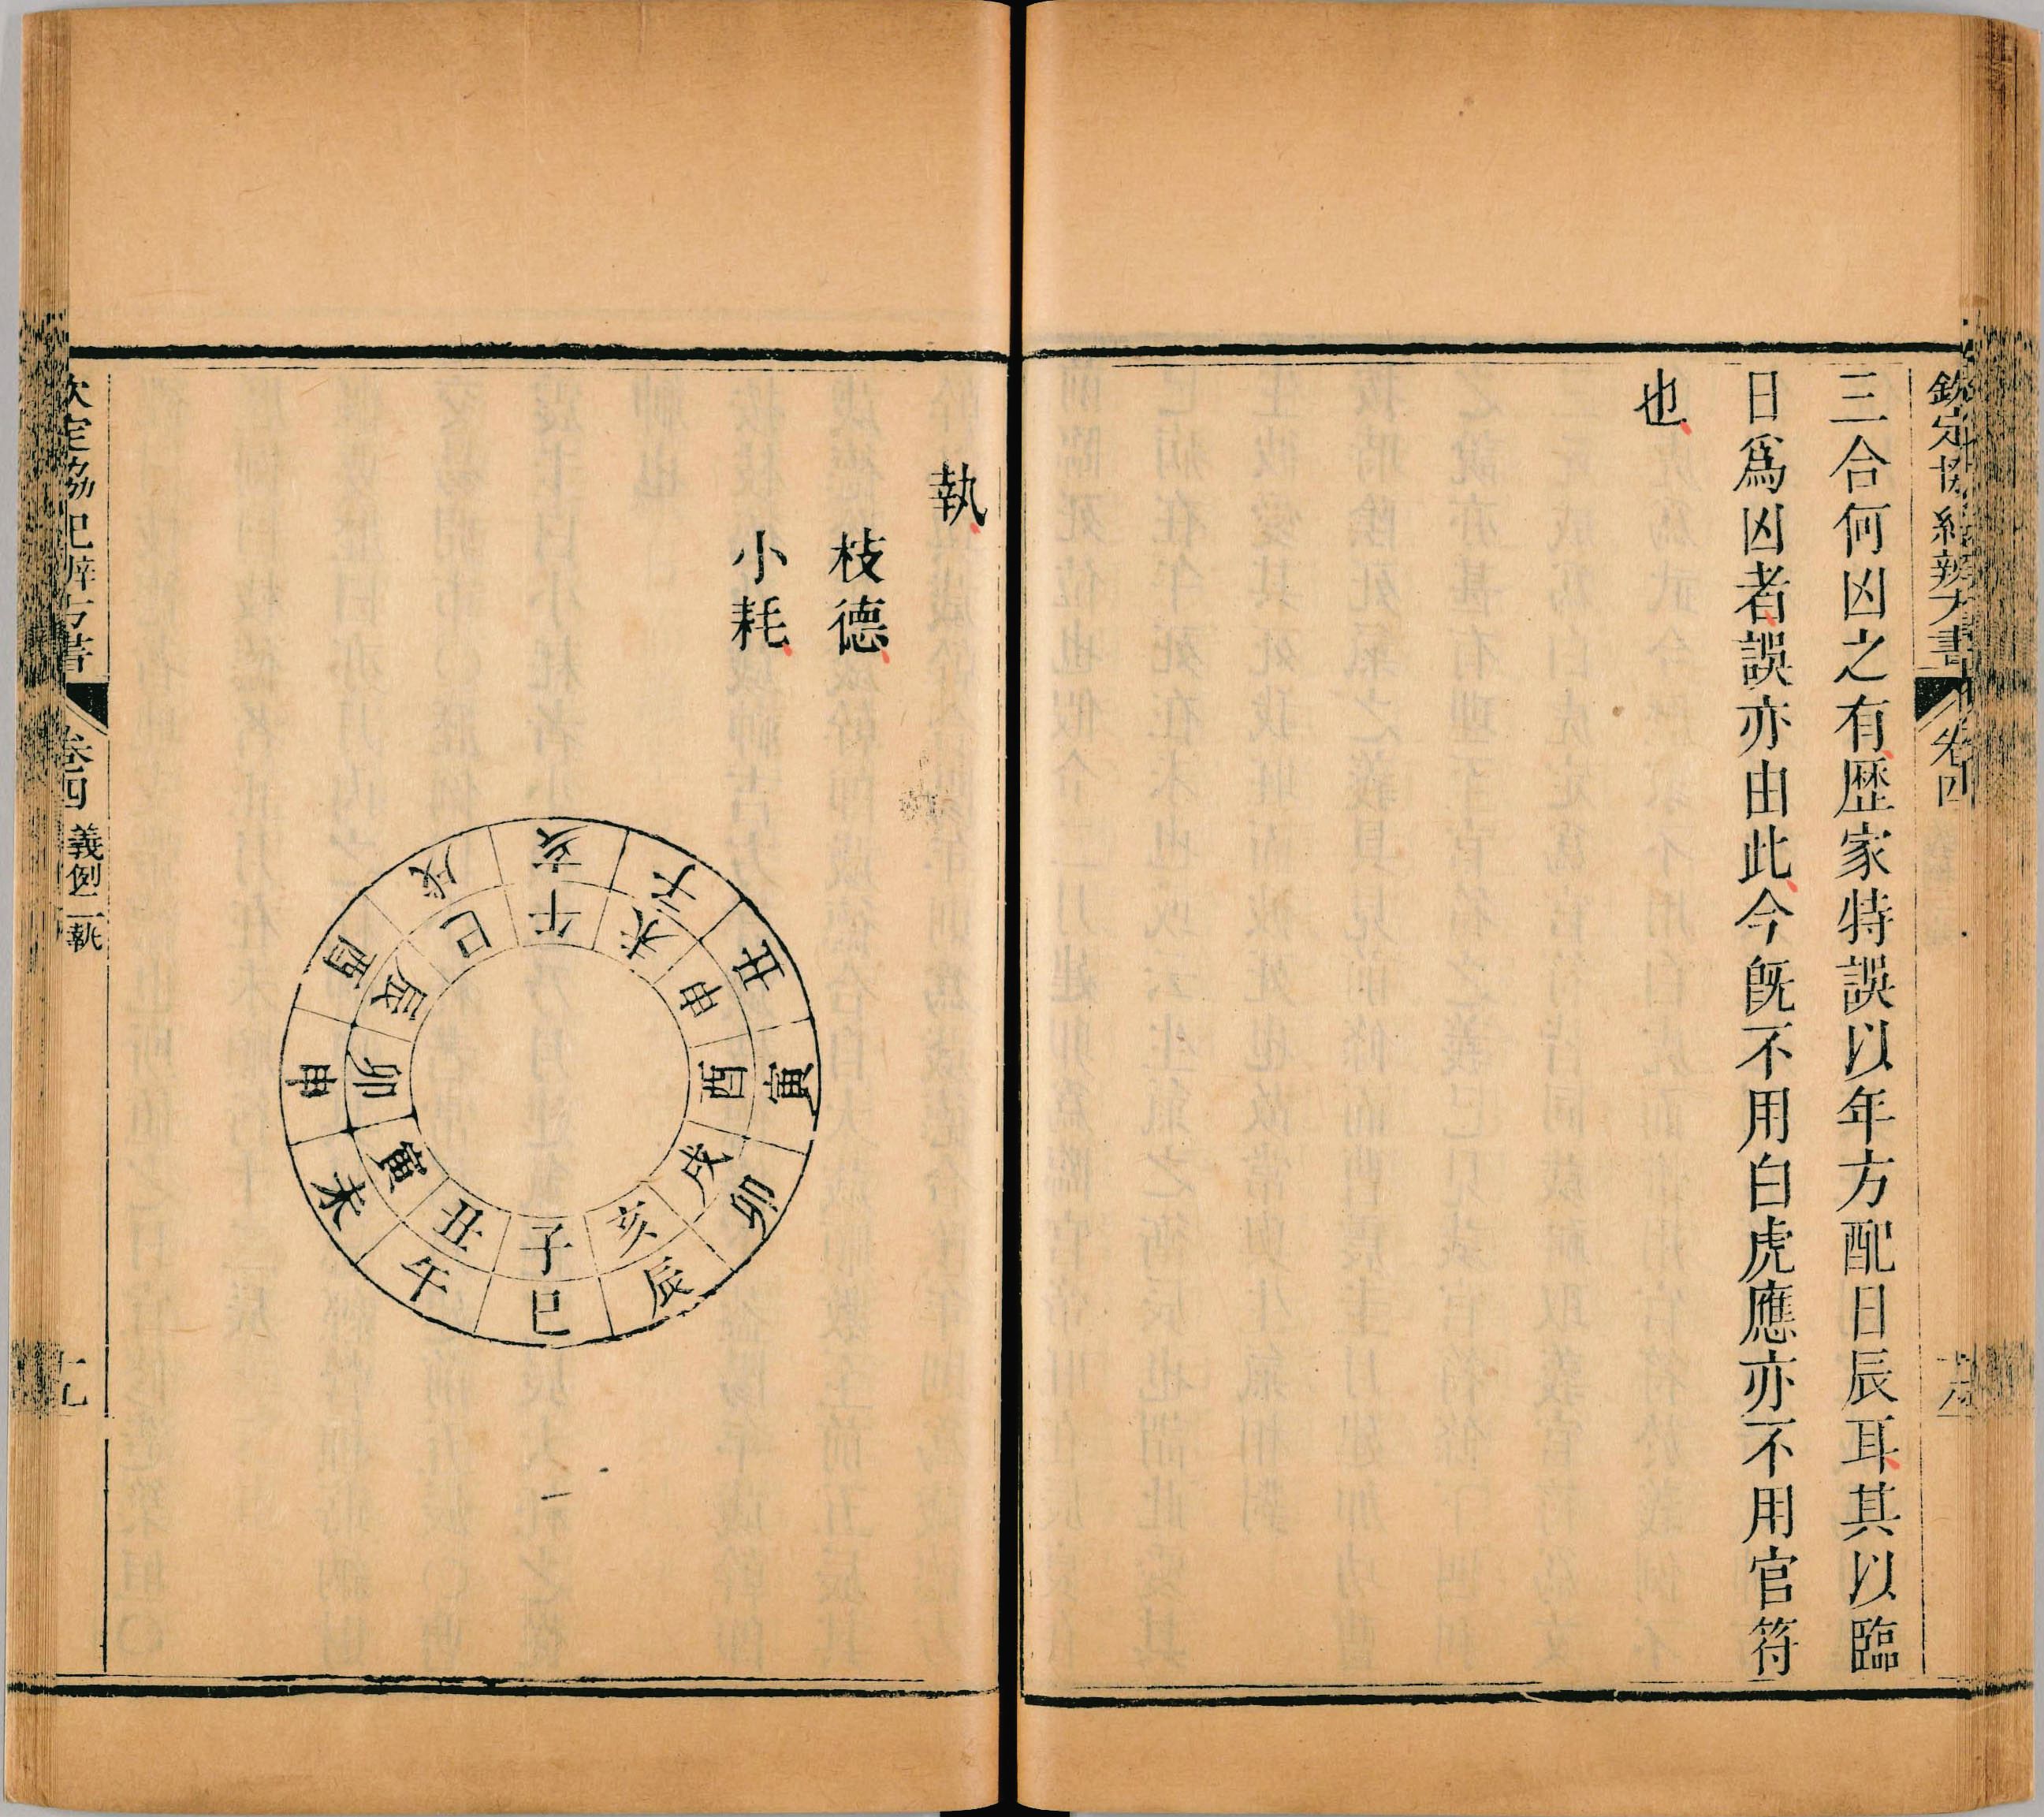 欽定協紀辨方書 卷四
三合何凶之有歷家特誤以年方配日辰耳其以臨
日爲凶者誤亦由此今旣不用白虎應亦不用官符
也
執
枝德
小耗
亥子丑寅卯辰巳午未申酉戌
午未申酉戌亥子丑寅卯辰巳
欽定協紀辨方書 卷四 義例二執 十九